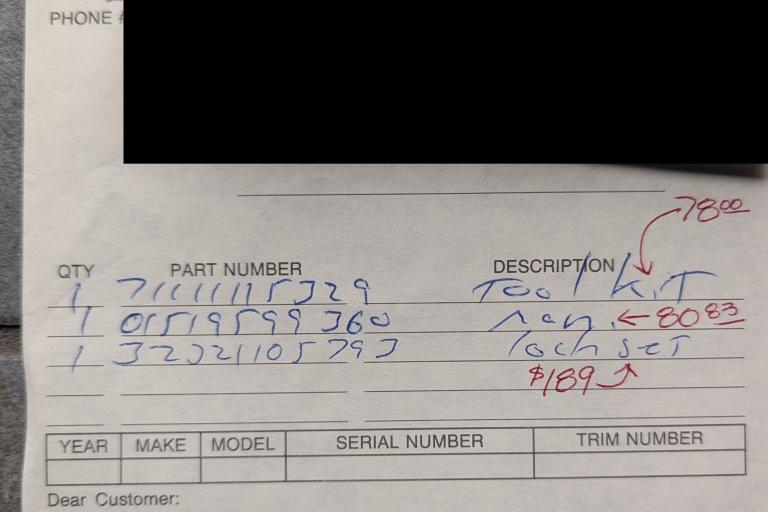 PHONE #
78⁰⁰
QTY PART NUMBER DESCRIPTION
1 71111115329 Tool KiT
1 01519599360 ← 80 83
1 32321105793 loch SET
$189
YEAR MAKE MODEL SERIAL NUMBER TRIM NUMBER
Dear Customer: